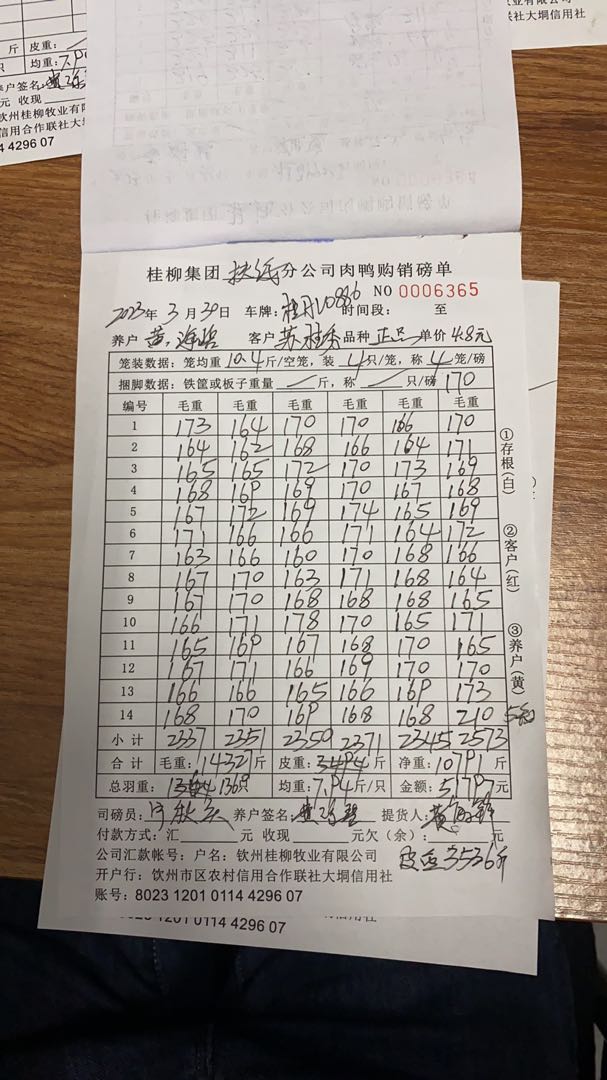 斤 皮重:
只 均重:7.9
养户签名:
元 收现
钦州桂柳牧业有限
信用合作联社大
4 4296 07
联社大垌信用社
桂柳集团 分公司肉鸭购销磅单
NO 0006365
2023年 3月30日 车牌: 时间段: 至
养户 黄 客户 苏 品种 正品 单价 4.8元
笼装数据:笼均重10.4斤/空笼,装 4只/笼,称 4笼/磅
捆脚数据:铁筐或板子重量 斤,称 只/磅 170
编号 毛重 毛重 毛重 毛重 毛重 毛重
1 173 164 170 170 166 170
2 164 162 168 166 164 171
3 165 165 172 170 173 169
4 168 169 169 170 167 168
5 167 172 169 174 165 169
6 171 166 166 171 164 172
7 163 166 160 170 168 166
8 167 170 163 171 168 164
9 167 170 168 168 168 165
10 166 171 178 170 165 171
11 165 169 167 168 170 165
12 167 171 166 169 170 170
13 166 166 165 166 169 173
14 168 170 169 168 168 210 5笼
小计 2337 2351 2350 2371 2345 2573
合计 毛重:14327斤 皮重: 斤 净重:10791斤
总羽重: 1360只 均重:7.94斤/只 金额:51797元
司磅员: 养户签名: 提货人:黄
付款方式:汇 元 收现 元欠(余): 元
公司汇款帐号:户名:钦州桂柳牧业有限公司 皮重3536斤
开户行:钦州市区农村信用合作联社大垌信用社
账号:8023 1201 0114 4296 07
①存根(白)
②客户(红)
③养户(黄)
8023 1201 0114 4296 07